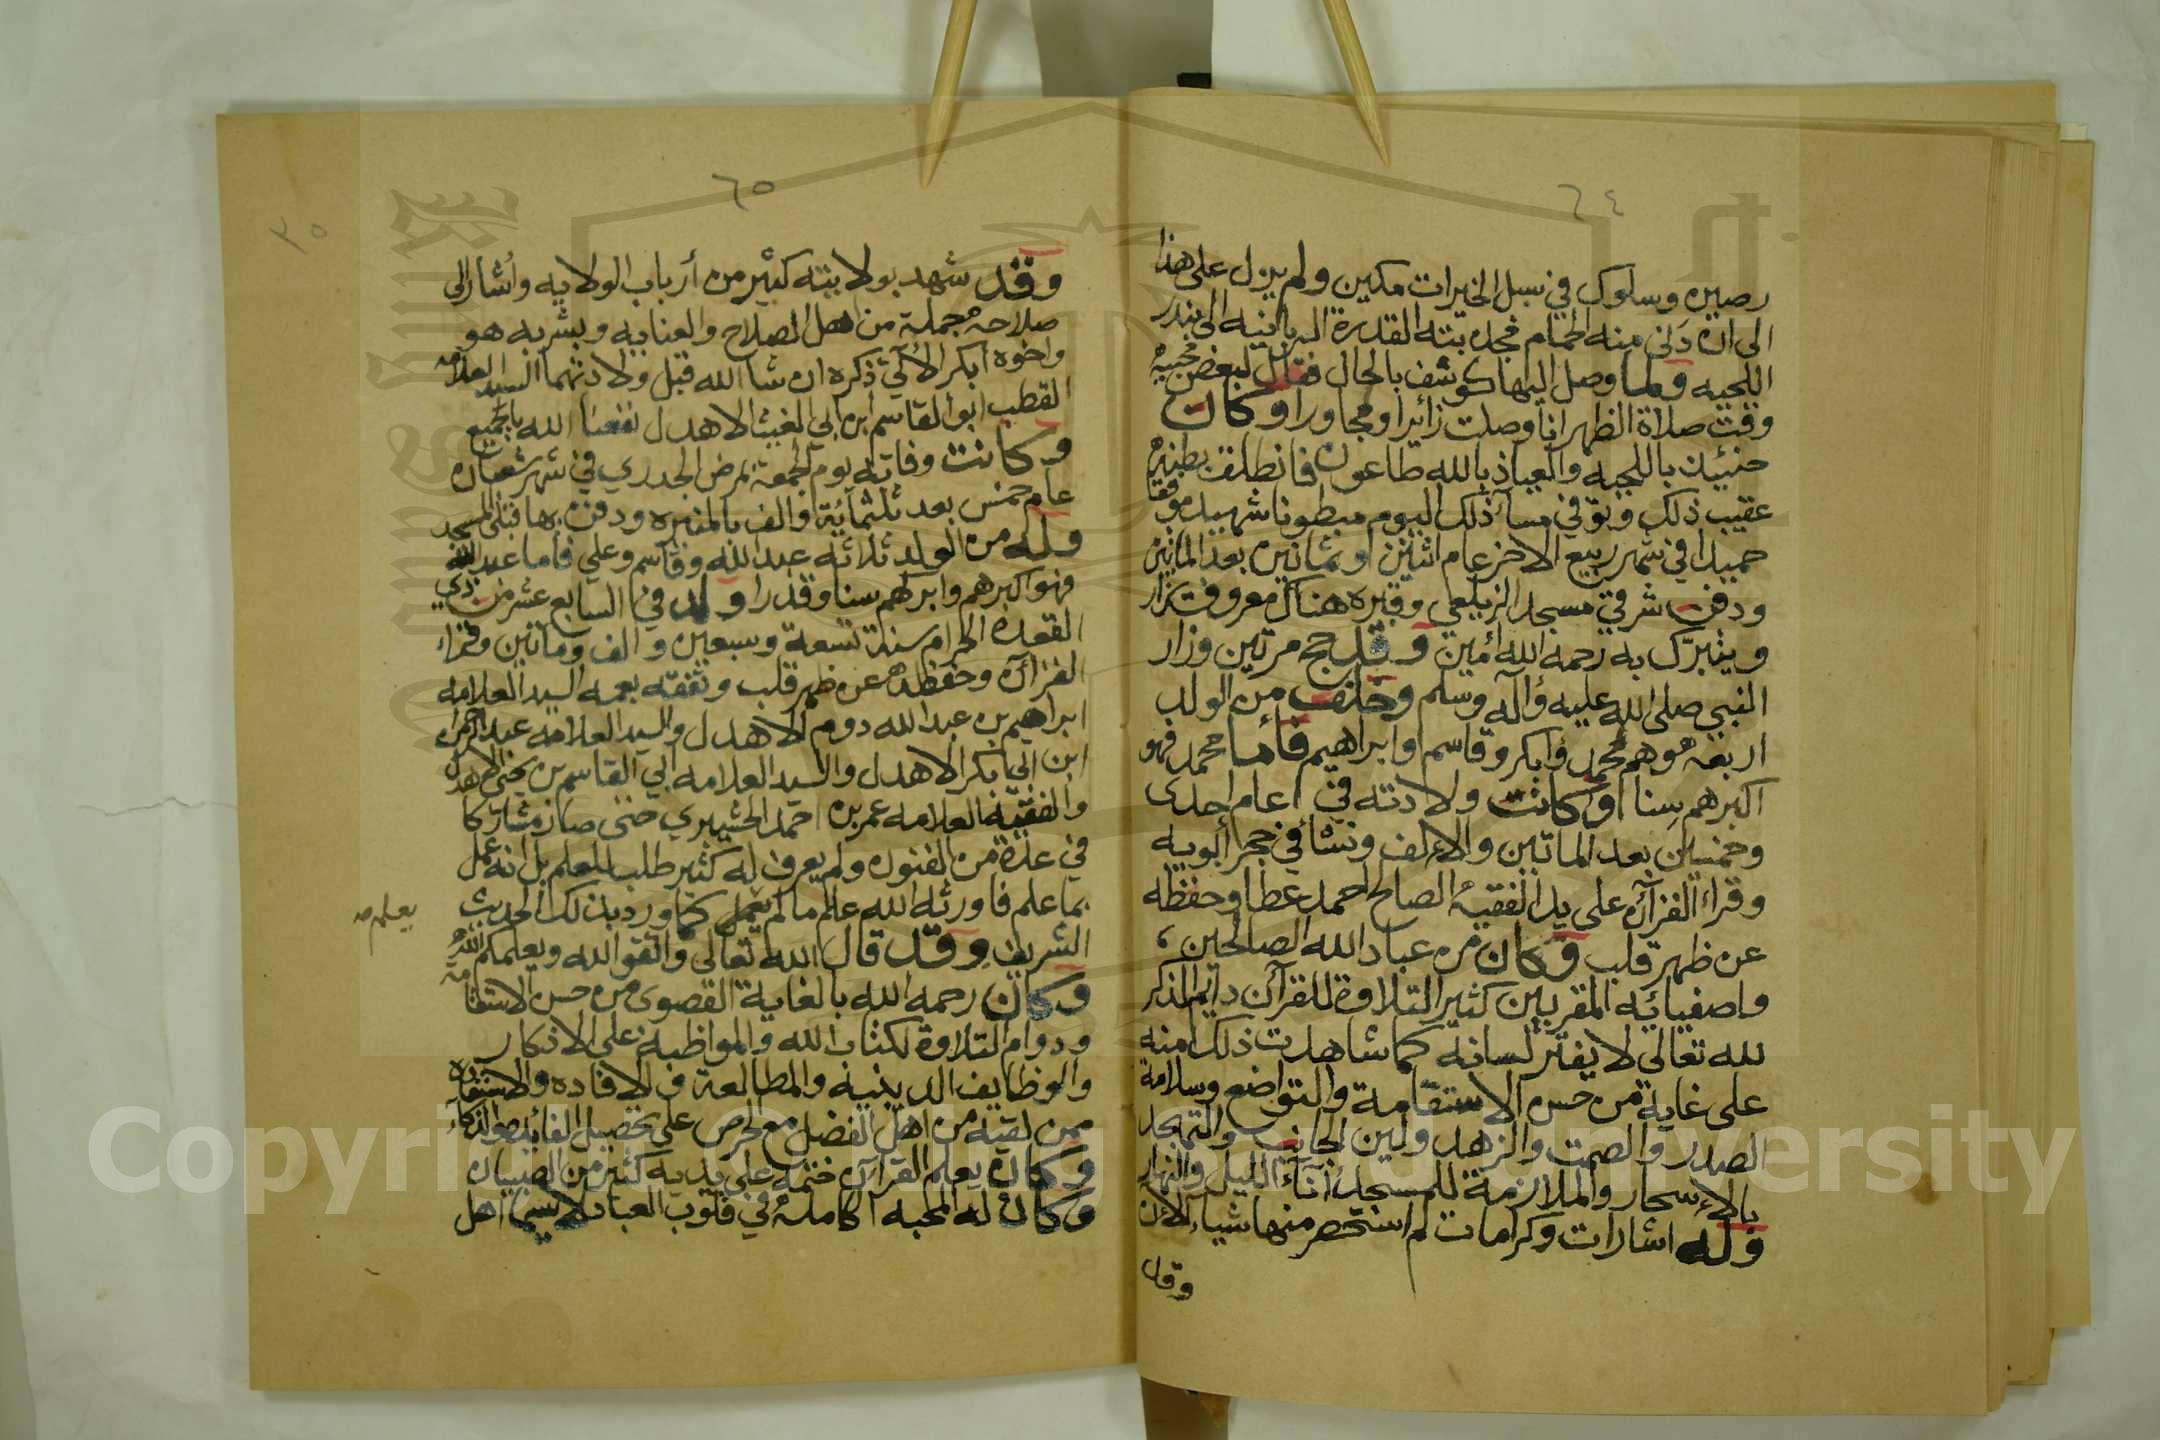 ٦٤
رصين وسلوك في سبل الخيرات مكين ولم يزل على هذا
الى ان دنى منه الحمام فجذبته القدرة الربانيه الى بندر
اللحيه ولما وصل اليها كوشف بالحال فقال لبعض محبيه
وقت صلاة الظهر انا وصلت زائرا ومجاورا وكان
حنيئذ باللحيه والعياذ بالله طاعون فانطلقت بطنه
عقيب ذلك وتوفي مساء ذلك اليوم مبطونا شهيدا موفقا
حميدا في شهر ربيع الاخر عام اثنين او ثمانين بعد الماتين
ودفن شرقي مسجد الزيلعي وقبره هناك معروف يزار
ويتبرك به رحمه الله امين وقد حج مرتين وزار
النبي صلى الله عليه وآله وسلم وخلف من الولد
اربعه هم محمد وابكر وقاسم وابراهيم فأما محمد فهو
اكبرهم سنا وكانت ولادته في عام احدى
وخمسين بعد الماتين والالف ونشأ في حجر أبويه
وقراء القرآن على يد الفقيه الصالح احمد عطا وحفظه
عن ظهر قلب وكان من عباد الله الصالحين
واصفيائه المقربين كثير التلاوة للقرآن دايم الذكر
لله تعالى لا يفتر لسانه كما شاهدت ذلك منه
على غاية من حسن الاستقامة والتواضع وسلامة
الصدر والصمت والزهد ولين الجانب والتهجد
بالاسحار والملازمة للمسجد آناء الليل والنهار
وله اشارات وكرامات لم استحضر منها شياء الان
وقد
٦٥
٣٥
وقد شهد بولايته كثير من أرباب الولايه وأشار الى
صلاحه مجملة من اهل الصلاح والعنايه وبشر به هو
واخوه ابكر الآتي ذكره ان شا الله قبل ولادتهما السيد العلامه
القطب ابو القاسم بن ابي الغيث الاهدل نفعنا الله بالجميع
وكانت وفاته يوم الجمعة بمرض الجدري في شهر شعبان
عام خمس بعد ثلثمائة والف بالمنيره ودفن بها قبلي المسجد
وله من الولد ثلاثه عبد الله وقاسم وعلي فأما عبد الله
فهو اكبرهم وابركهم سنا وقدرا ولد في السابع عشر من ذي
القعدة الحرام سنة تسعة وسبعين والف وماتين وقراء
القرآن وحفظه عن ظهر قلب وتفقه بعمه السيد العلامه
ابراهيم بن عبد الله دوم الاهدل والسيد العلامه عبد الرحمن
ابن ابي بكر الاهدل والسيد العلامه ابي القاسم بن يحيى الاهدل
والفقيه العلامه عمر بن احمد الحشيبري حتى صار مشاركا
في عدة من الفنون ولم يعرف له كثير طلب للعلم بل انه عمل
بما علم فاورثه الله علم مالم يعمل كما ورد بذلك الحديث
يعلم صه
الشريف وقد قال الله تعالى واتقوا الله ويعلمكم الله
وكان رحمه الله بالغاية القصوى من حسن الاستقامة
ودوام التلاوة لكتاب الله والمواظبة على الاذكار
والوظايف الدينية والمطالعة والافاده والاستفاده
ممن لقيه من اهل الفضل مع الحرص على تحصيل الفائده والذكاء
وكان يعلم القرآن ختمه على يديه كثير من الصبيان
وكان له المحبه الكامله في قلوب العباد لاسيما اهل